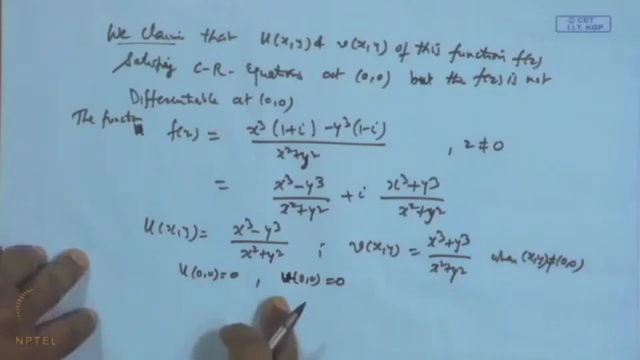 We Claim that u(x,y) & v(x,y) of this function f(z)
Satisfies C-R- Equations at (0,0) but the f(z) is not
Differentiable at (0,0)
The function f(z) = x³(1+i) - y³(1-i) / x²+y² , z ≠ 0
= x³-y³ / x²+y² + i x³+y³ / x²+y²
u(x,y) = x³-y³ / x²+y² ; v(x,y) = x³+y³ / x²+y² when (x,y)≠(0,0)
u(0,0)=0 , v(0,0)=0
© CET
I.I.T. KGP
NPTEL